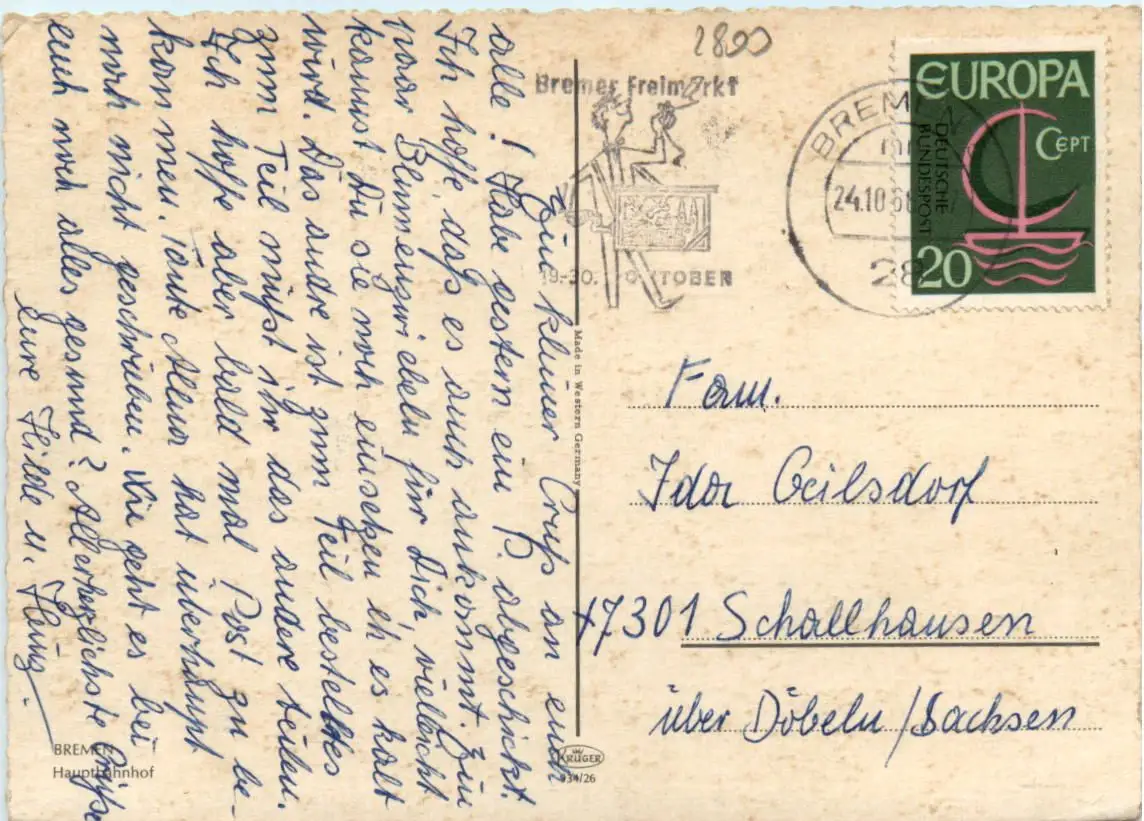 2800
Bremer Freimarkt
19.-30. OKTOBER
BREMEN
24.10.66
28
EUROPA
CEPT
DEUTSCHE
BUNDESPOST
20
Ein kleiner Gruß an euch
alle! Habe gestern ein P. abgeschickt.
Ich hoffe, daß es auch ankommt. Ein
paar Blumenzwiebeln für Dich, vielleicht
kannst Du sie noch einsetzen eh es kalt
wird. Das andre ist zum Teil bestelltes
zum Teil müßt ihr das andere teilen.
Ich hoffe aber bald mal Post zu be-
kommen. Tante Alma hat überhaupt
noch nicht geschrieben. Wie geht es bei
euch noch alles gesund? Allerherzlichste Grüße
Eure Hilde u. Heinz.
Made in Western Germany
Fam.
Ida Geilsdorf
x7301 Schallhausen
über Döbeln/Sachsen
BREMEN
Hauptbahnhof
KRÜGER
934/26